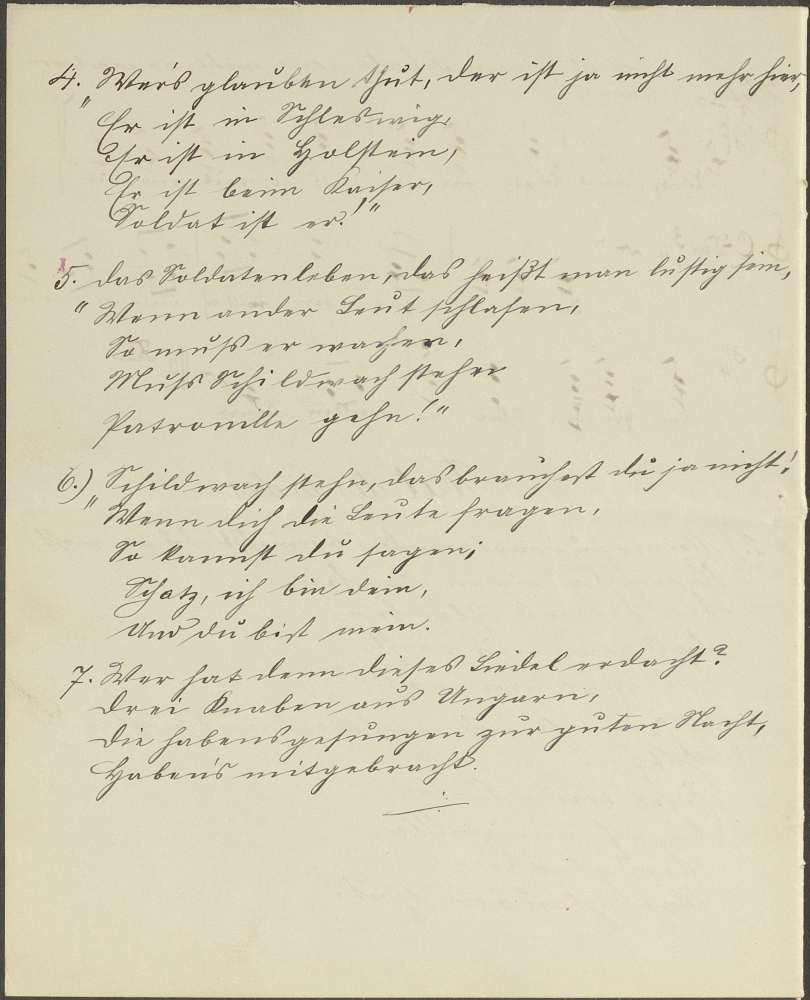 4. Wer's glauben thut, der ist ja nicht mehr hier,
"Er ist in Schleswig,
Er ist in Holstein,
Er ist beim Kaiser,
Soldat ist er!"
5. das Soldatenleben, das heißt man lustig sein,
"Wenn ander Leut schlafen,
So muß er wachen,
Muß Schildwach stehen
Patrouille gehn!"
6.) Schildwach stehn, das brauchest du ja nicht!
"Wenn dich die Leute fragen,
So kannst du sagen;
Schatz, ich bin dein,
Und du bist mein.
7. Wer hat denn dieses Liedel erdacht?
Drei Knaben aus Ungarn,
Die habens gesungen zur guten Nacht,
Haben's mitgebracht.